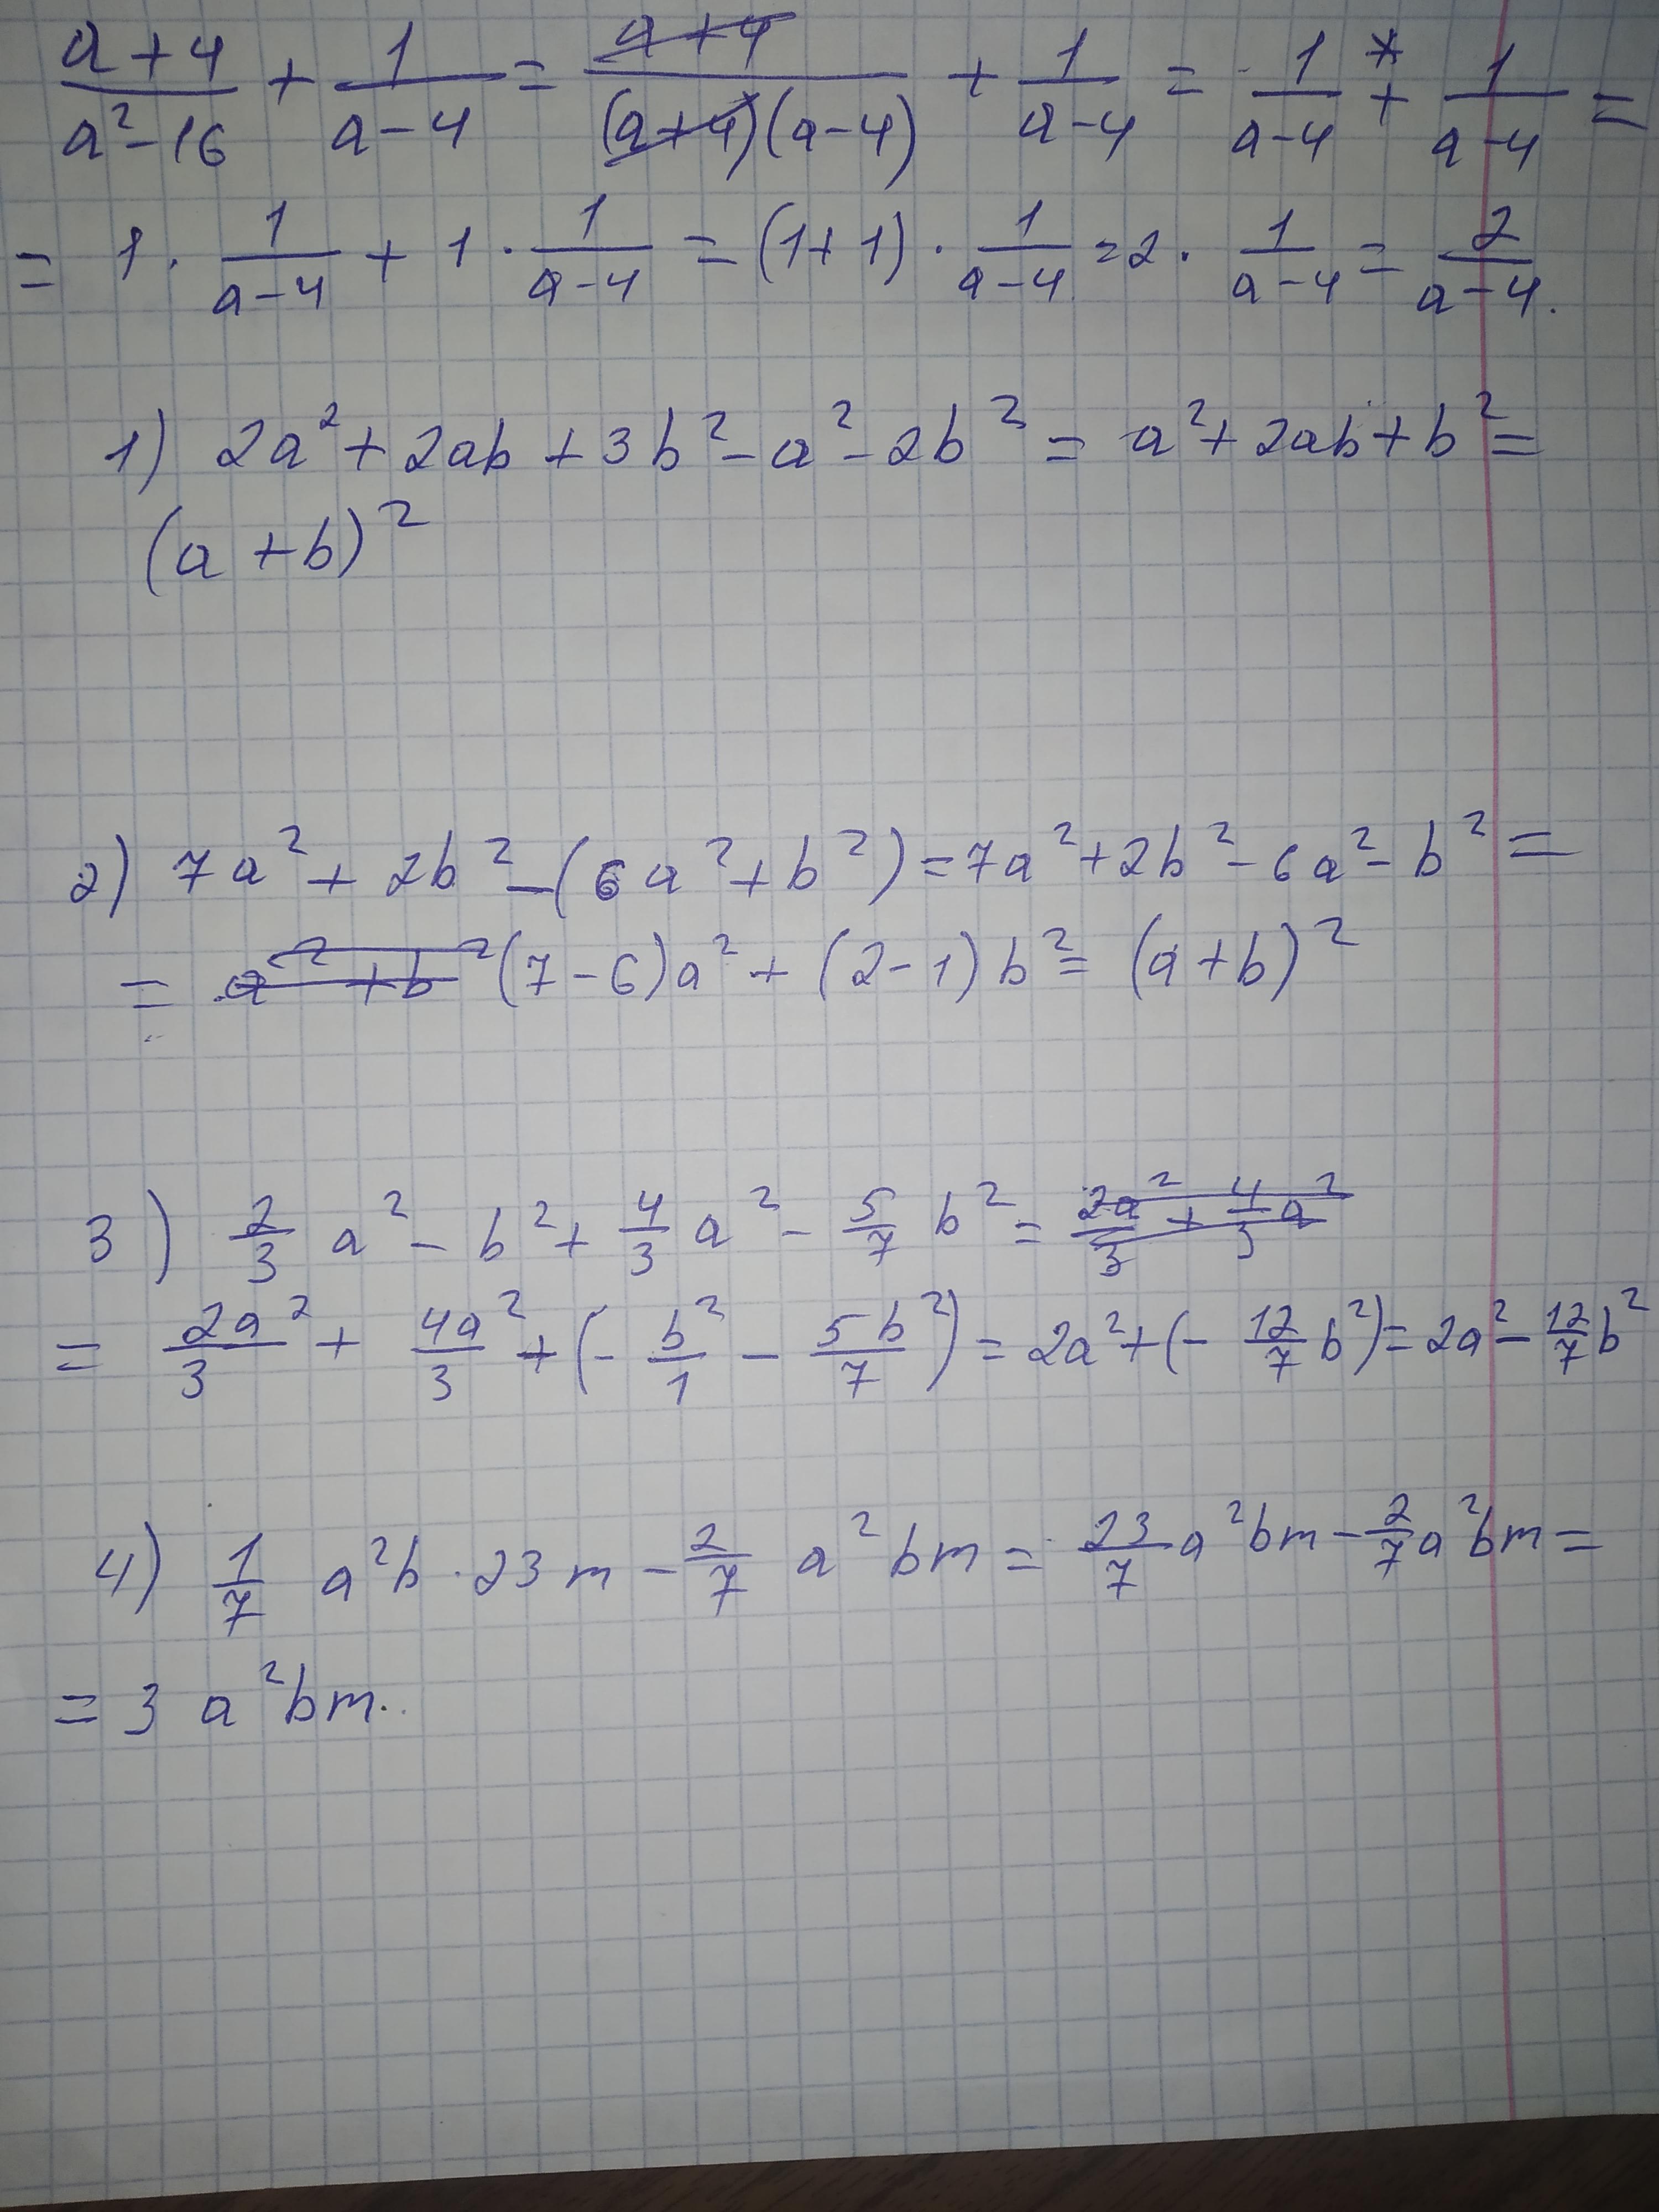 (a+4)/(a²-16) + 1/(a-4) = (a+4)/((a+4)(a-4)) + 1/(a-4) = 1/(a-4) +* 1/(a-4) =
= 1 · 1/(a-4) + 1 · 1/(a-4) = (1+1) · 1/(a-4) = 2 · 1/(a-4) = 2/(a-4).
1) 2a² + 2ab + 3b² - a² - 2b² = a² + 2ab + b² =
(a+b)²
2) 7a² + 2b² - (6a² + b²) = 7a² + 2b² - 6a² - b² =
= a² + b² (7-6)a² + (2-1)b² = (a+b)²
3) 2/3 a² - b² + 4/3 a² - 5/7 b² = 2a²/3 + 4/3 a²
= 2a²/3 + 4a²/3 + (- b²/1 - 5b²/7) = 2a² + (- 12/7 b²) = 2a² - 12/7 b²
4) 1/7 a²b · 23m - 2/7 a²bm = 23/7 a²bm - 2/7 a²bm =
= 3a²bm.